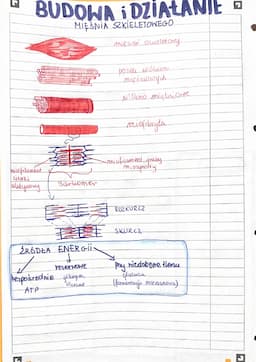 BUDOWA i DZIAŁANIE
MIĘŚNIA SZKIELETOWEGO
mięsień szkieletowy
pęczek włókien
mięśniowych
włókno mięśniowe
miofibryla
miofilament gruby
miofilament
cienki
aktynowy
sarkomer
ROZKURCZ
SKURCZ
ŹRÓDŁA ENERGII
bezpośrednie
ATP
przy niedoborze tlenu
glukoza